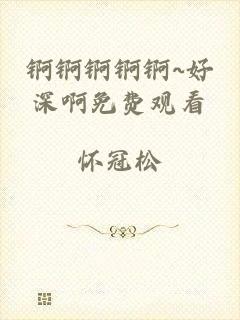 锕锕锕锕锕~好
深啊免费观看
怀冠松